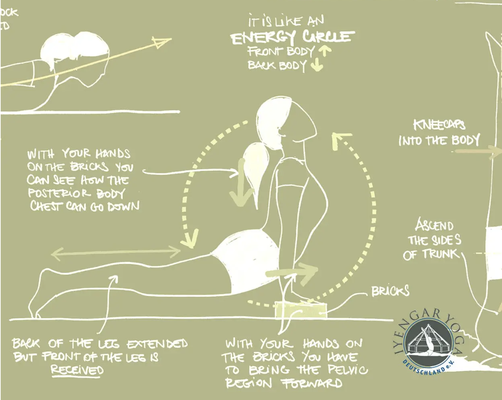 OCK
ED
IT IS LIKE AN
ENERGY CIRCLE
FRONT BODY
BACK BODY
KNEECAPS
INTO THE BODY
WITH YOUR HANDS
ON THE BRICKS YOU
CAN SEE HOW THE
POSTERIOR BODY
CHEST CAN GO DOWN
ASCEND
THE SIDES
OF TRUNK
BRICKS
BACK OF THE LEG EXTENDED
BUT FRONT OF THE LEG IS
RECEIVED
WITH YOUR HANDS ON
THE BRICKS YOU HAVE
TO BRING THE PELVIC
REGION FORWARD
IYENGAR YOGA
DEUTSCHLAND e.V.